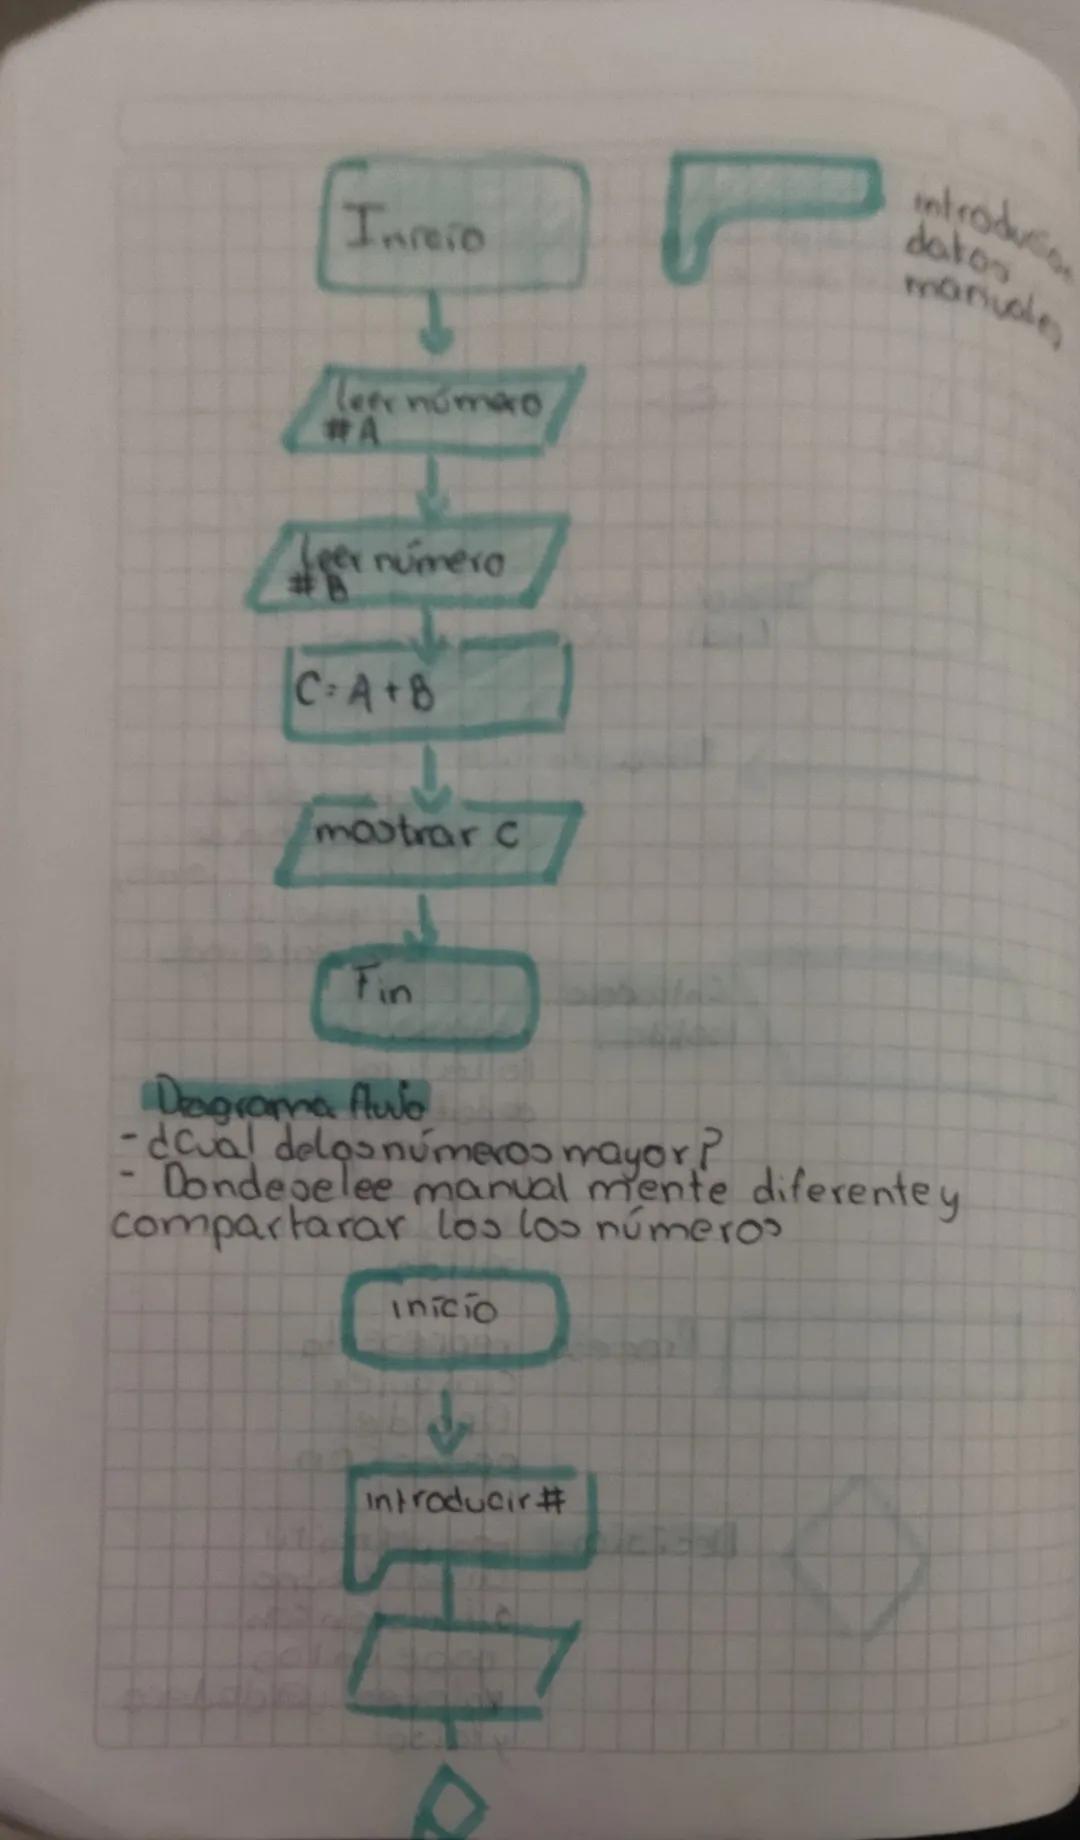 Inicio
introducir
datos
manuales
leer número
#A
leer número
#B
C=A+B
mostrar C
Fin
Diagrama flujo
- ¿Cual delos números mayor?
- Donde se lee manual mente diferente y
compartarar los los números
inicio
introducir #